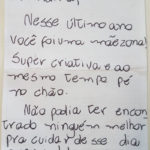 Nesse último ano
você foi uma mãezona!
Super criativa e ao
mesmo tempo pé
no chão.
Não podia ter encon
trado ninguém melhor
pra cuidar desse dia